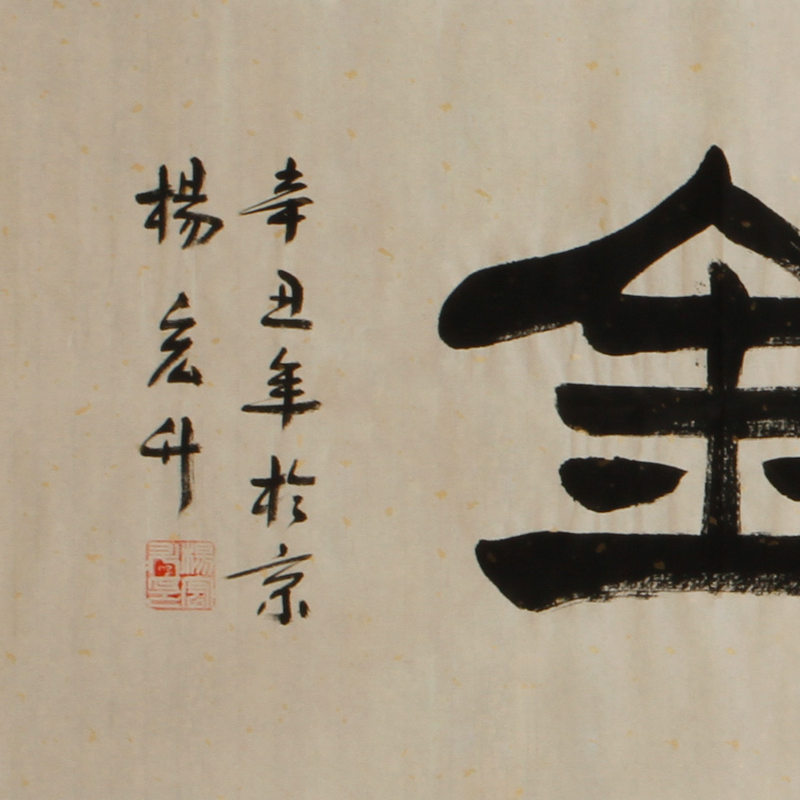 金
辛丑年於京
楊宏升